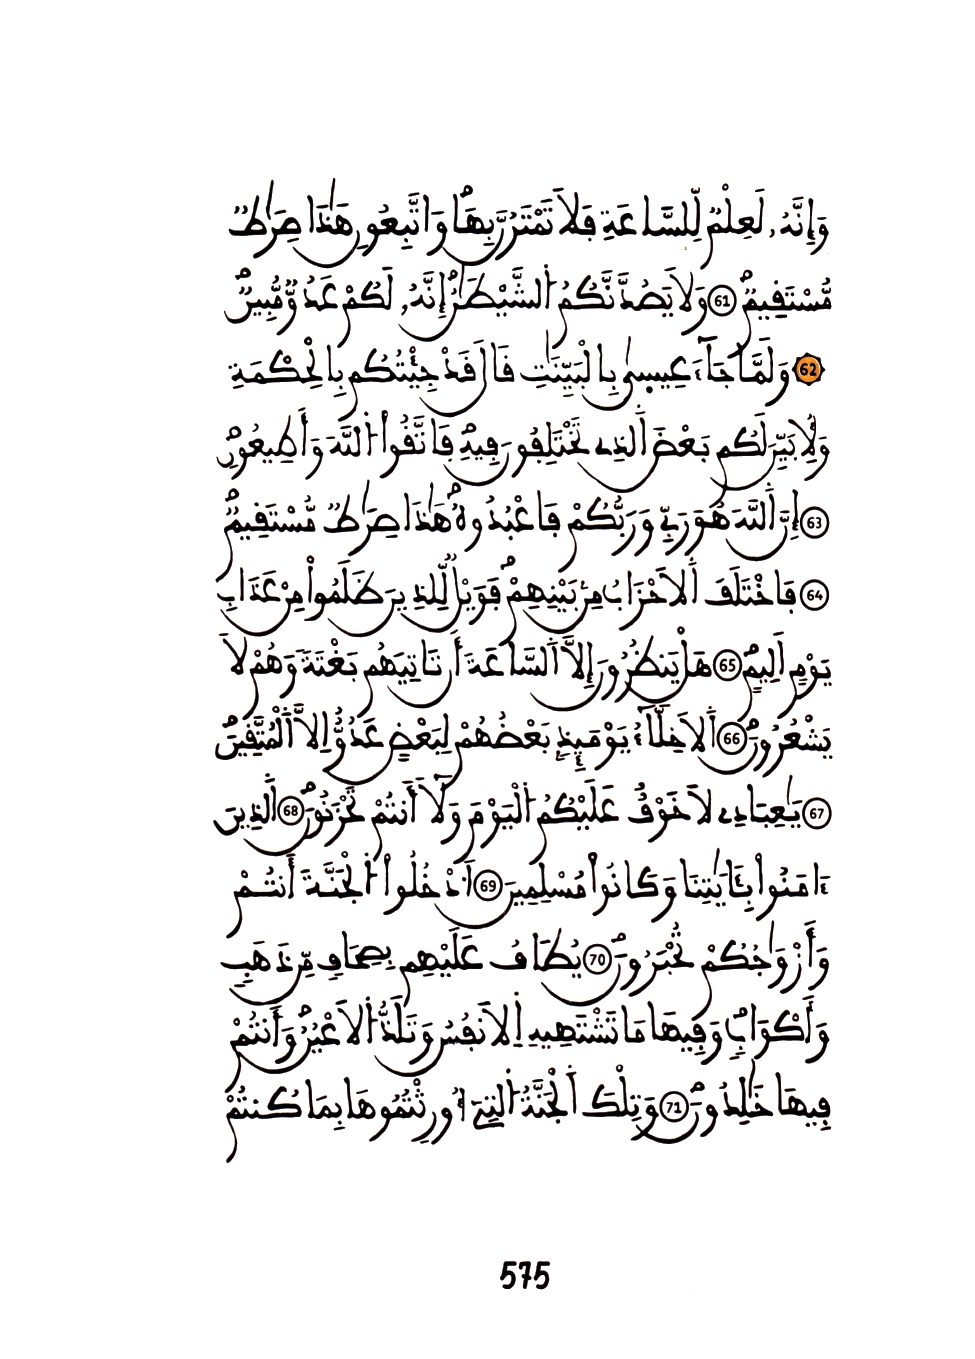 وَإِنَّهُۥ لَعِلْمٌ لِّلسَّاعَةِ فَلَا تَمْتَرُنَّ بِهَا وَاتَّبِعُونِ هَٰذَا صِرَٰطٌ
مُّسْتَقِيمٌ 61 وَلَا يَصُدَّنَّكُمُ الشَّيْطَٰنُ إِنَّهُۥ لَكُمْ عَدُوٌّ مُّبِينٌ
62 وَلَمَّا جَآءَ عِيسٜىٰ بِالْبَيِّنَٰتِ قَالَ قَدْ جِئْتُكُم بِالْحِكْمَةِ
وَلِأُبَيِّنَ لَكُم بَعْضَ الَّذِے تَخْتَلِفُونَ فِيهِ فَاتَّقُوا۟ اللَّهَ وَأَطِيعُونِ
63 إِنَّ اللَّهَ هُوَ رَبِّے وَرَبُّكُمْ فَاعْبُدُوهُ هَٰذَا صِرَٰطٌ مُّسْتَقِيمٌ
64 فَاخْتَلَفَ الَاحْزَابُ مِنۢ بَيْنِهِمْ فَوَيْلٌ لِّلَّذِينَ ظَلَمُوا۟ مِنْ عَذَابِ
يَوْمٍ أَلِيمٍ 65 هَلْ يَنظُرُونَ إِلَّا السَّاعَةَ أَن تَاتِيَهُم بَغْتَةً وَهُمْ لَا
يَشْعُرُونَ 66 الَاخِلَّآءُ يَوْمَئِذٍۢ بَعْضُهُمْ لِبَعْضٍ عَدُوٌّ اِلَّا الْمُتَّقِينَ
67 يَٰعِبَادِے لَا خَوْفٌ عَلَيْكُمُ الْيَوْمَ وَلَآ أَنتُمْ تَحْزَنُونَ 68 الَّذِينَ
ءَامَنُوا۟ بِـَٔايَٰتِنَا وَكَانُوا۟ مُسْلِمِينَ 69 اَدْخُلُوا۟ الْجَنَّةَ أَنتُمْ
وَأَزْوَٰجُكُمْ تُحْبَرُونَ 70 يُطَافُ عَلَيْهِم بِصِحَافٍ مِّن ذَهَبٍ
وَأَكْوَابٍ وَفِيهَا مَا تَشْتَهِيهِ اِلَانفُسُ وَتَلَذُّ الَاعْيُنُ وَأَنتُمْ
فِيهَا خَٰلِدُونَ 71 وَتِلْكَ الْجَنَّةُ الَّتِےٓ أُورِثْتُمُوهَا بِمَا كُنتُمْ
575